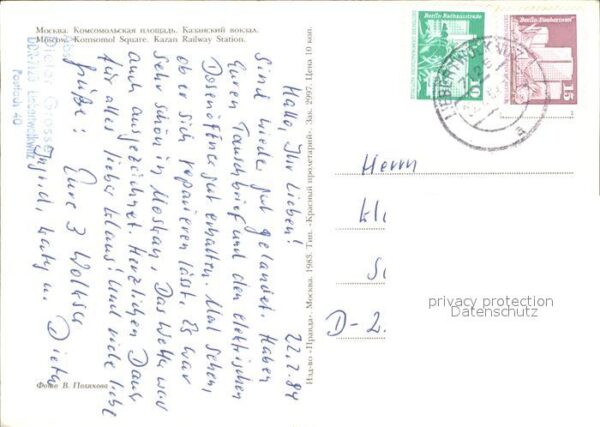 Москва. Комсомольская площадь. Казанский вокзал.
Moscow. Komsomol Square. Kazan Railway Station.
22.2.84
Hallo, Ihr Lieben!
Sind wieder gut gelandet. Haben
Euren Tauschbrief und den elektrischen
Dosenöffner gut erhalten. Mal sehen,
ob er sich reparieren lässt. Es war
sehr schön in Moskau, Das Wetter war
auch ausgezeichnet. Herzlichen Dank
für alles lieber Klaus! Und viele liebe
Grüße: Eure 3
Ingrid, Katy u. Dieter
Dieter Grosse
Postfach 40
Фото В. Полякова
Изд-во «Правда». Москва. 1983. Тип. «Красный пролетарий». Зак. 2997. Цена 10 коп.
Berlin, Rathausstraße
10
15
Herrn
Kl
S
D-2
privacy protection
Datenschutz